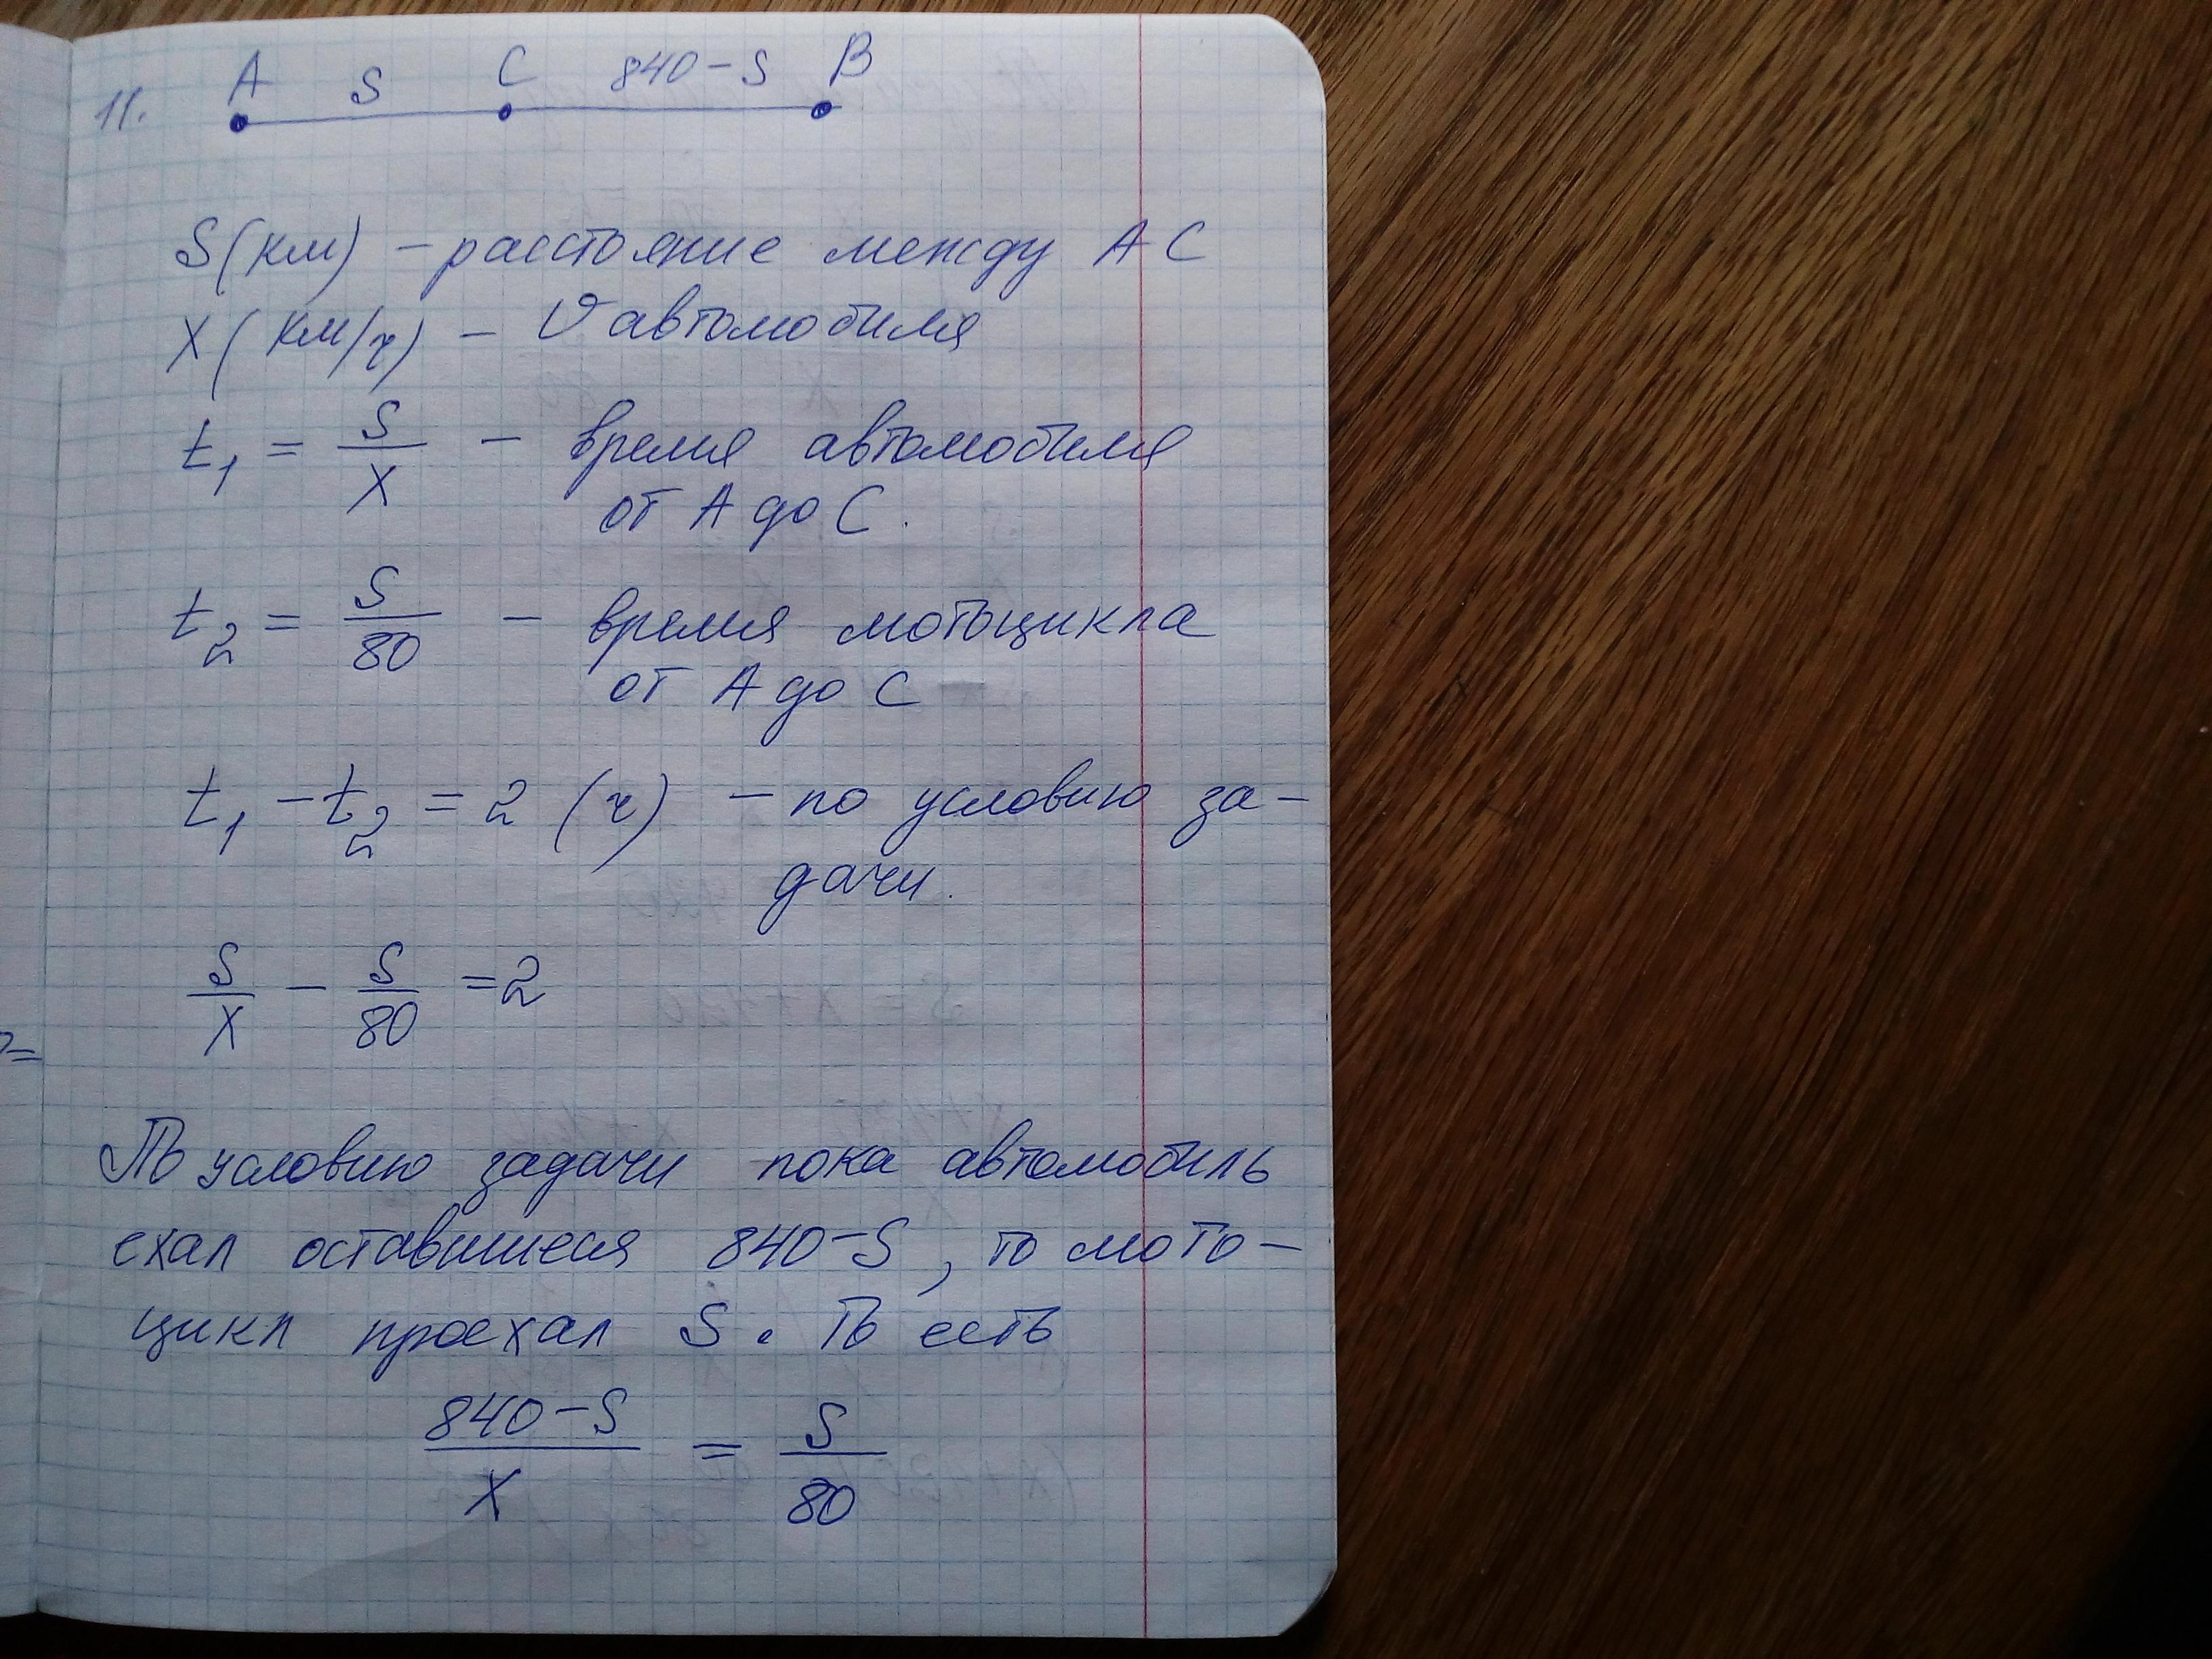 11. A S C 840-S B
S(км) - расстояние между AC
X(км/ч) - V автомобиля
t₁ = S/X - время автомобиля
от A до C.
t₂ = S/80 - время мотоцикла
от A до C
t₁ - t₂ = 2 (ч) - по условию за-
дачи.
S/X - S/80 = 2
По условию задачи пока автомобиль
ехал оставшиеся 840-S, то мото-
цикл проехал S. То есть
(840-S)/X = S/80